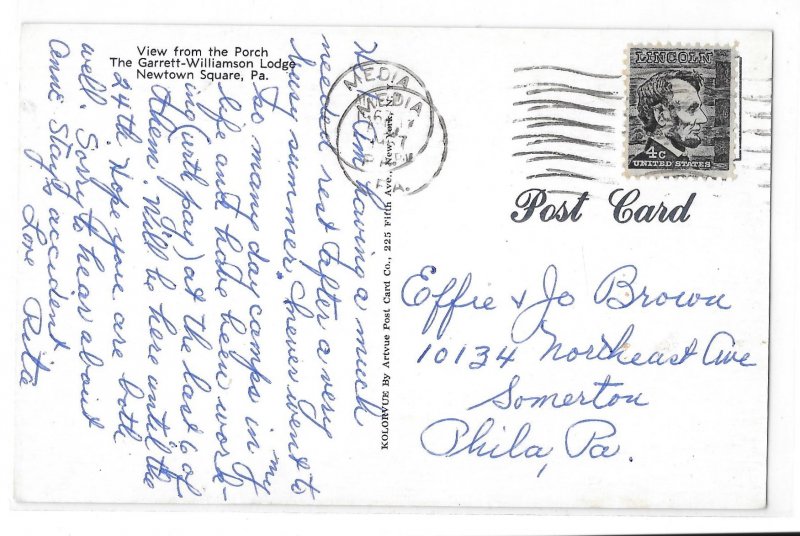 View from the Porch
The Garrett-Williamson Lodge
Newtown Square, Pa.
Hi, I'm having a much
needed rest after a very
busy summer. I never went to
so many day camps in my
life and have been work-
ing (with pay) at the last 6 of
them. Will be here until the
24th. Hope you are both
well. Sorry to hear about
Anne Stag's accident
Love Rita
KOLORVUE By Artvue Post Card Co., 225 Fifth Ave., New York, N. Y.
MEDIA
MEDIA
PA.
LINCOLN
4c
UNITED STATES
Post Card
Effie & Jo Brown
10134 Northeast Ave
Somerton
Phila, Pa.